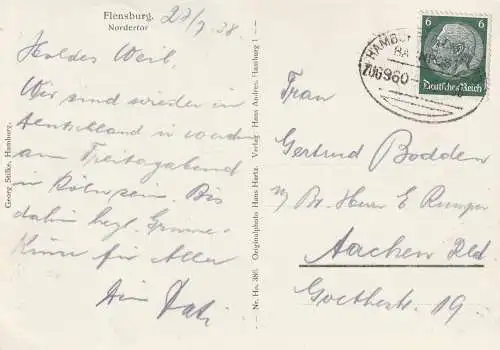 Flensburg.
Nordertor
27/7 38.
Holdes Weib.
Wir sind wieder in
Deutschland u werden
am Freitagabend
in Köln sein. Bis
dahin hrzl. Grüsse
Küsse für Alle
Dein
Georg Stilke, Hamburg.
Nr. Ho. 380. Originalphoto Hans Hartz Verlag Hans Andres, Hamburg 1
HAMBU
ZUG960
6
6
Deutsches Reich
Frau
Gertrud Bodden
b/ Br. Herr E
Aachen Rld
Goethestr. 19